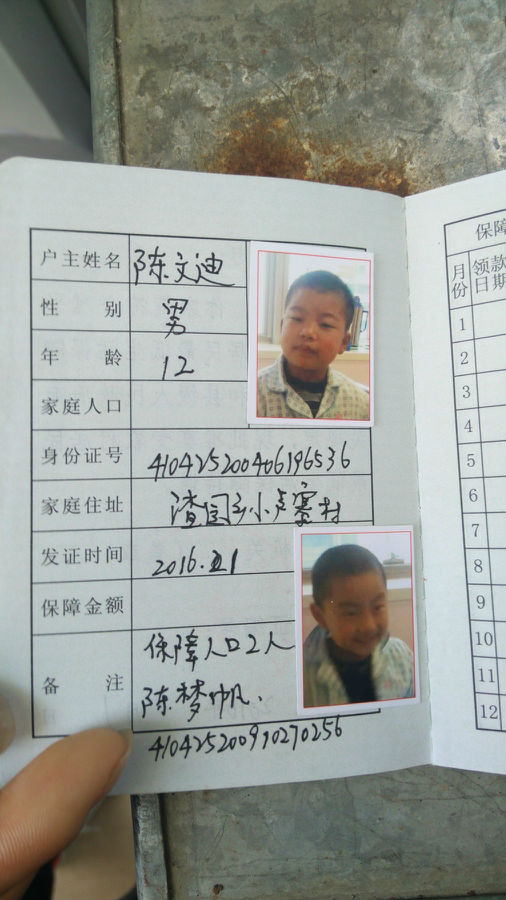 户主姓名 陈文迪
性别 男
年龄 12
家庭人口
身份证号 410425200406196536
家庭住址 渣园乡小卢寨村
发证时间 2016.
保障金额
备注 保障人口2人
陈梦帆.
410425200910270256
保障
月份 领款日期
1
2
3
4
5
6
7
8
9
10
11
12